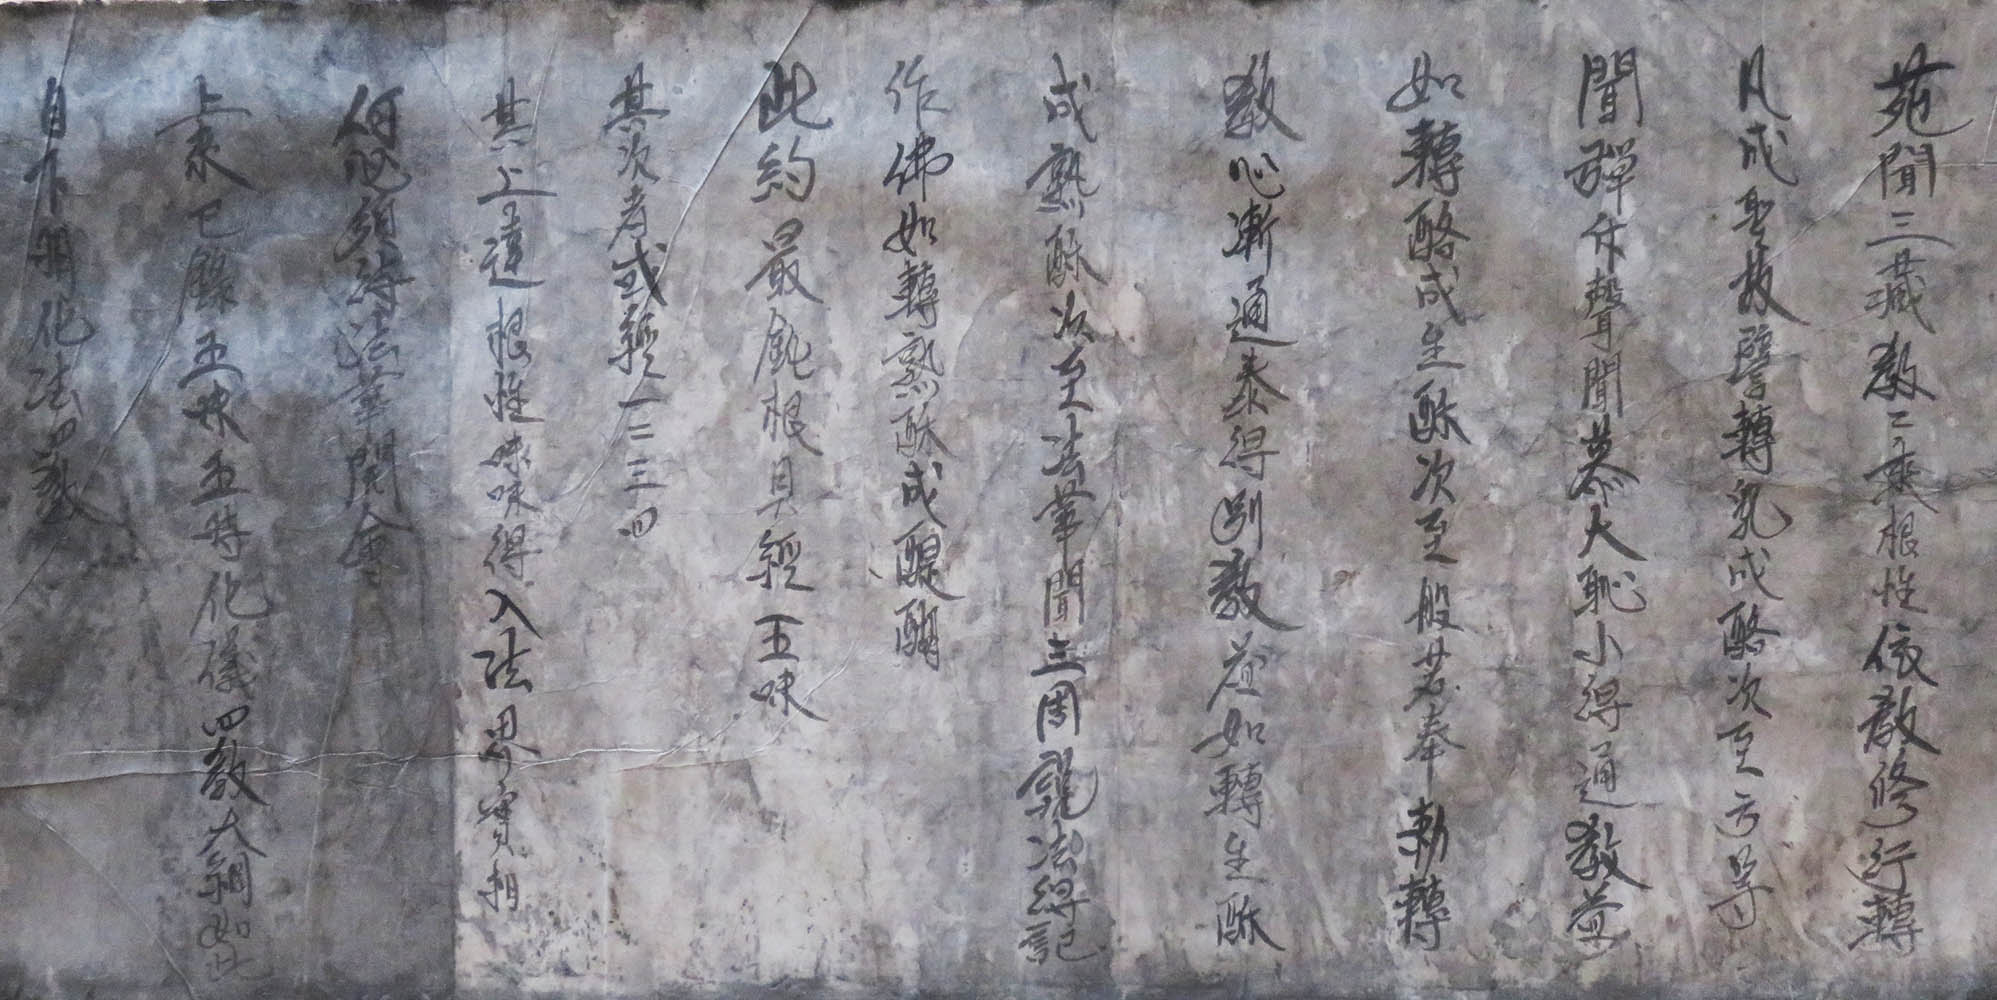 苑聞三藏教二乘根性依教修行轉
凡成聖故譬轉乳成酪次至方等
聞彈斥聲聞慕大恥小得通教益
如轉酪成生酥次至般若奉勅轉
教心漸通泰得別教益如轉生酥
成熟酥次至法華聞三周說法得記
作佛如轉熟酥成醍醐
此約最鈍根具經五味
其次者或經一二三四
其上達根性味味得入法界實相
何必須待法華開會
上來已錄五味五時化儀四教大綱如此
自下明化法四教